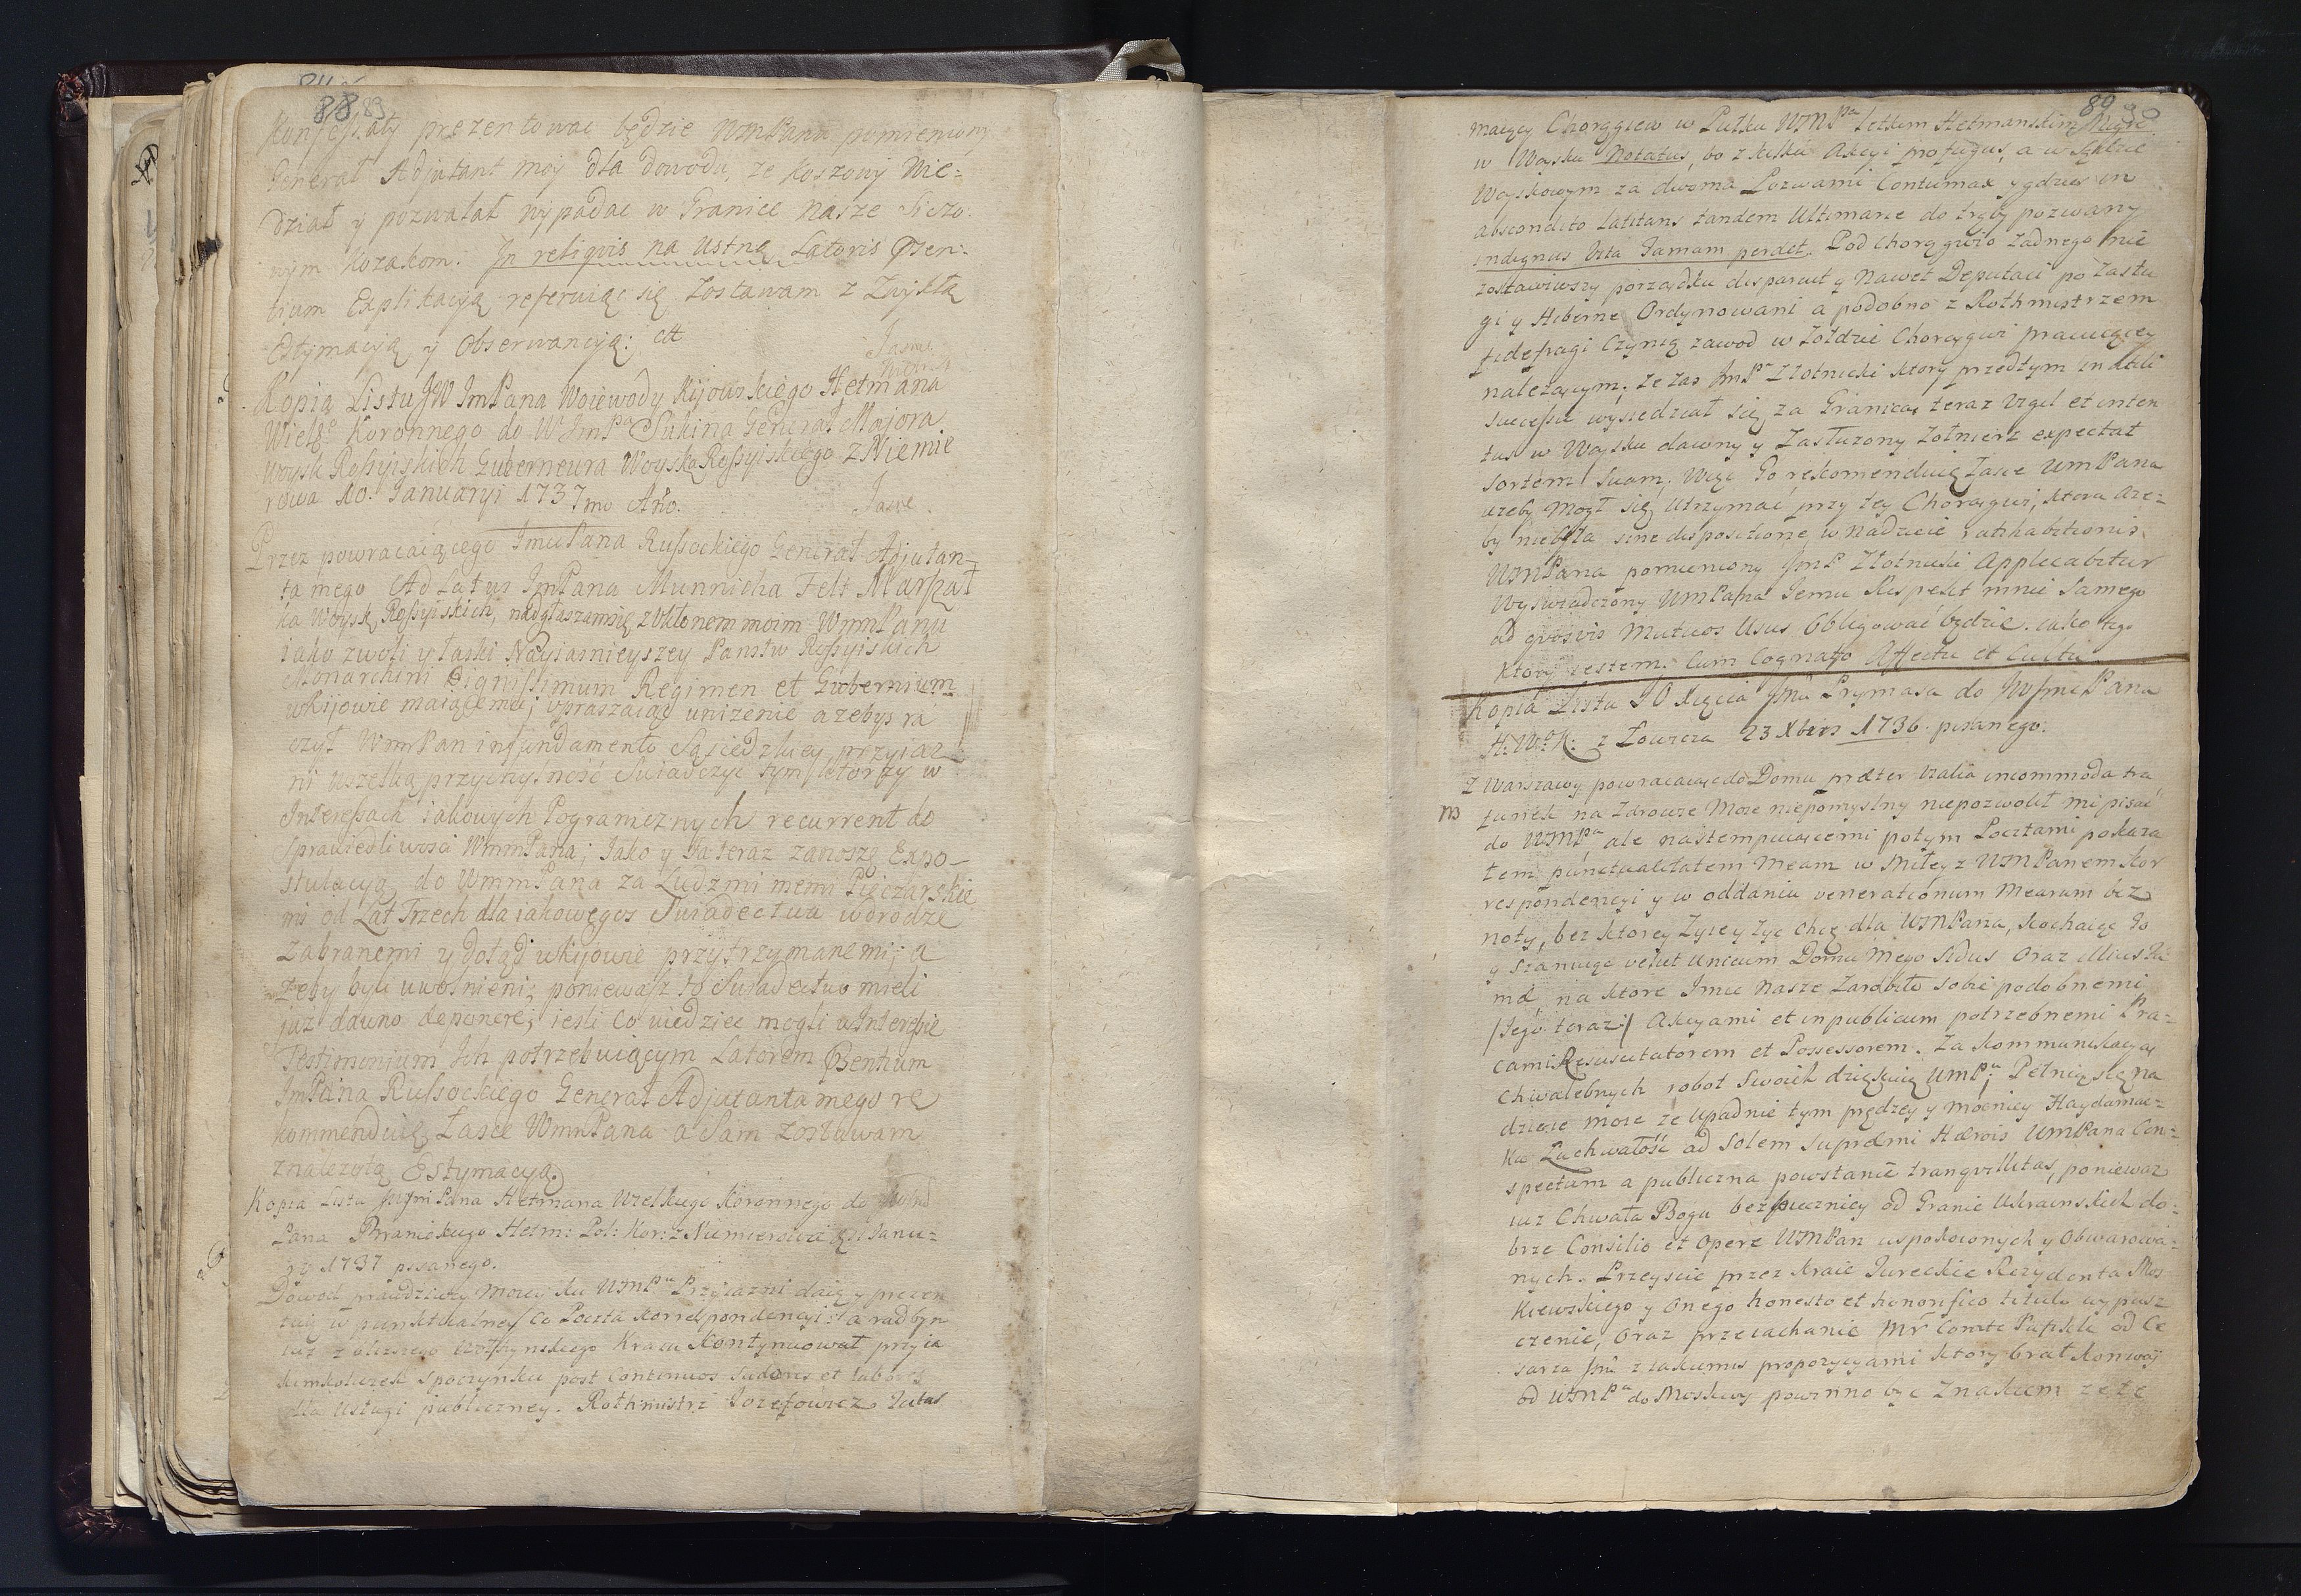 88 89
Konfessaty prezentowac będzie WmPanu pomieniony
Generał Adjutant moy dla dowodu, ze Koszowy Wie=
dział y pozwalał wypadac w Granice nasze Siczo=
wym Kozakom. In reliquis na ustną Latoris Praesen=
tium Explikacyą referuiąc się zostawam z Zwykłą
Estymacyą y Obserwancyą: ett
Kopia Listu JW ImPana Woiewody Kijowskiego Hetmana
Wielgo Koronnego do W ImPa Sukina Generał Majora
Woysk Rossyiskich Guberneura Woyska Rossyiskiego z Niemie
rowa 10. Januaryi 1737mo Ano.
Przez powracaiącego ImciPana Russockiego Generał Adjutan=
ta mego Ad Latus ImPana Munnicha Felt Marszał
ka Woysk Rossyiskich, nadgłaszam się z Ukłonem moim WmmPanu
iako z woli y łaski Nayiasnieyszey Panstw Rossyiskich
Monarchini Dignissimum Regimen et Gubernium
w Kijowie maiącemu; upraszaiąc unizenie azebys ra
czył WmmPan in fundamento Sąsiedzkiey przyiaz
ni wszelką przychylność Swiadczyc tym ktorzy w
Interessach iakowych Pogranicznych recurrent do
Sprawiedliwosci WmmPana; Jako y Ja teraz zanoszę Expo=
stulacyą do WmmPana za Ludzmi memi Pieczarskie
mi od Lat Trzech dla iakowegos Swiadectwa w drodze
Zabranemi y dotąd w Kijowie przytrzymanemi; a
zeby byli uwolnieni; poniewasz to Swiadectwo mieli
juz dawno deponere; iesli co wiedziec mogli w Interesie
Testimonium Ich potrzebuiącym Latorem Praesentium
ImPana Russockiego Generał Adjutanta mego re
kommenduię Łasce WmmPana a Sam zostawam
z należytą Estymacyą.
Kopia Listu ImPana Hetmana Wielkiego Koronnego do
Pana Branickiego Hetm: Pol: Kor: z Niemierowa Janu=
1737 pisanego.
Dowod prawdziwey mowy ku WMPu Przyiazni daię y prezen
tuię w punktualney co Poczta Korrespondencyi; a rad bym
iuz z blizszego Wołhynskiego Kraiu Kontynuował przy ia
kimkolwiek spoczynku post Continuos Sudores et labores
dla usługi publiczney. Rothmistrz Jozefowicz

89 90
maiący Chorągiew w Pułku WMPa Letkim Hetmanskim
w Woysku Notatus, bo z kilku Akcyi profugus, a w Sądzie
Woyskowym za dwoma Pozwami Contumax y gdzies in
abscondito latitans tandem Ultimarie do trąby pozwany
indignus Vita Famam perdet. Pod Chorągwio zadnego nie
zostawiwszy porządku disparuit y Nawet Deputaci po Zasłu
gi y Hiberne Ordynowani a podobno z Rothmistrzem
fidefragi Czynią zawod w Zołdzie Chorągwi pracuiącey
nalezącym; Ze zas ImPn Złotnicki ktory przedtym in tali
successu wysiedział się za Granicą, teraz Vigil et inten
tus w Woysku dawny y Zasłuzony Zołnierz expectat
Sortem Suam. Więc Go rekomenduię łasce WmPana
azeby mogł się utrzymać przy tey Chorągwi, ktora aze=
by niebyła sine dispositione, w nadzieie ratihabitionis
WMPana pomieniony ImP Złotnicki Applicabitur
Wyswiadczony WmPana Jemu Respekt mnie samego
ad quosvis Mutuos Usus Obligować będzie. iako tego
ktory iestem. Cum Cognato Affectu et Cultu
Kopia Listu JO Xięcia Jmci Prymasa do JWJmciPana
H: Wo K: z Łowicza 23 Xbris 1736. pisanego.
Z Warszawy powracaiąc do Domu praeter Italia incommoda tra
NB
funek na Zdrowie moie niepomyslny niepozwolił mi pisać
do WMPa ale nastempuiącemi potym Pocztami pokaza
łem punctualitatem meam w Miłey z WMPanem Kor
respondencyi y w oddaniu venerationum Mearum bez
noty, bez ktorey Zyię y zyc chcę dla WMPana, kochaiąc Go
y szanuiąc velut Unicum Domu Mego Sidus Oraz
ma, na ktore Imie Nasze Zarobiło sobie podobnemi
/Jego teraz/ Akcyami et in publicum potrzebnemi Pra=
cami Resuscitatorem et Possessorem. Za Kommunikacyą
chwalebnych robot Swoich dziękuię WMPu; Pełnią się na
dzieie moie ze Upadnie tym prędzey y mocniey Haydamac=
ka Zuchwałość ad Solem supremi Herois WMPana Con=
spectum a publiczna powstanie tranquillitas, poniewaz
iuz Chwała Bogu bezpieczniey od Granic Ukrainskich do=
brze Consilio et Opere WMPan uspokoionych y Obwarowa=
nych. Przeyscie przez Kraie Tureckie Rezydenta Mos
kiewskiego y Onego honesto et honorifico titulo wypusz
czenie, Oraz przeiachanie Mr Comte od Ce
sarza Jmci z iakiemis propozycyami ktory brał Konwoy
od WMPa do Moskwy powinno byc Znakiem ze te